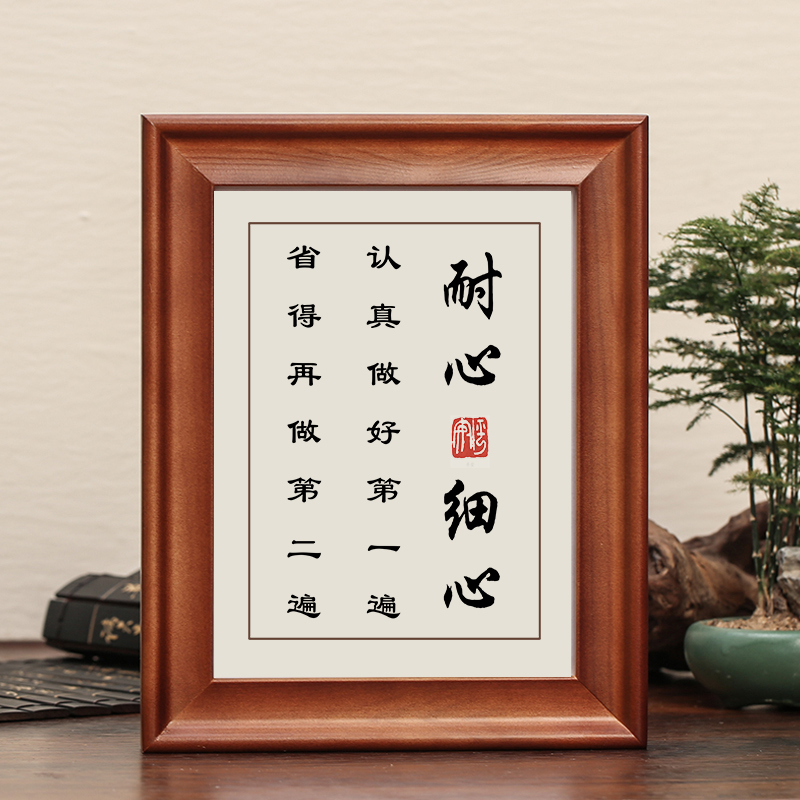 耐心
细心
认真做好第一遍
省得再做第二遍